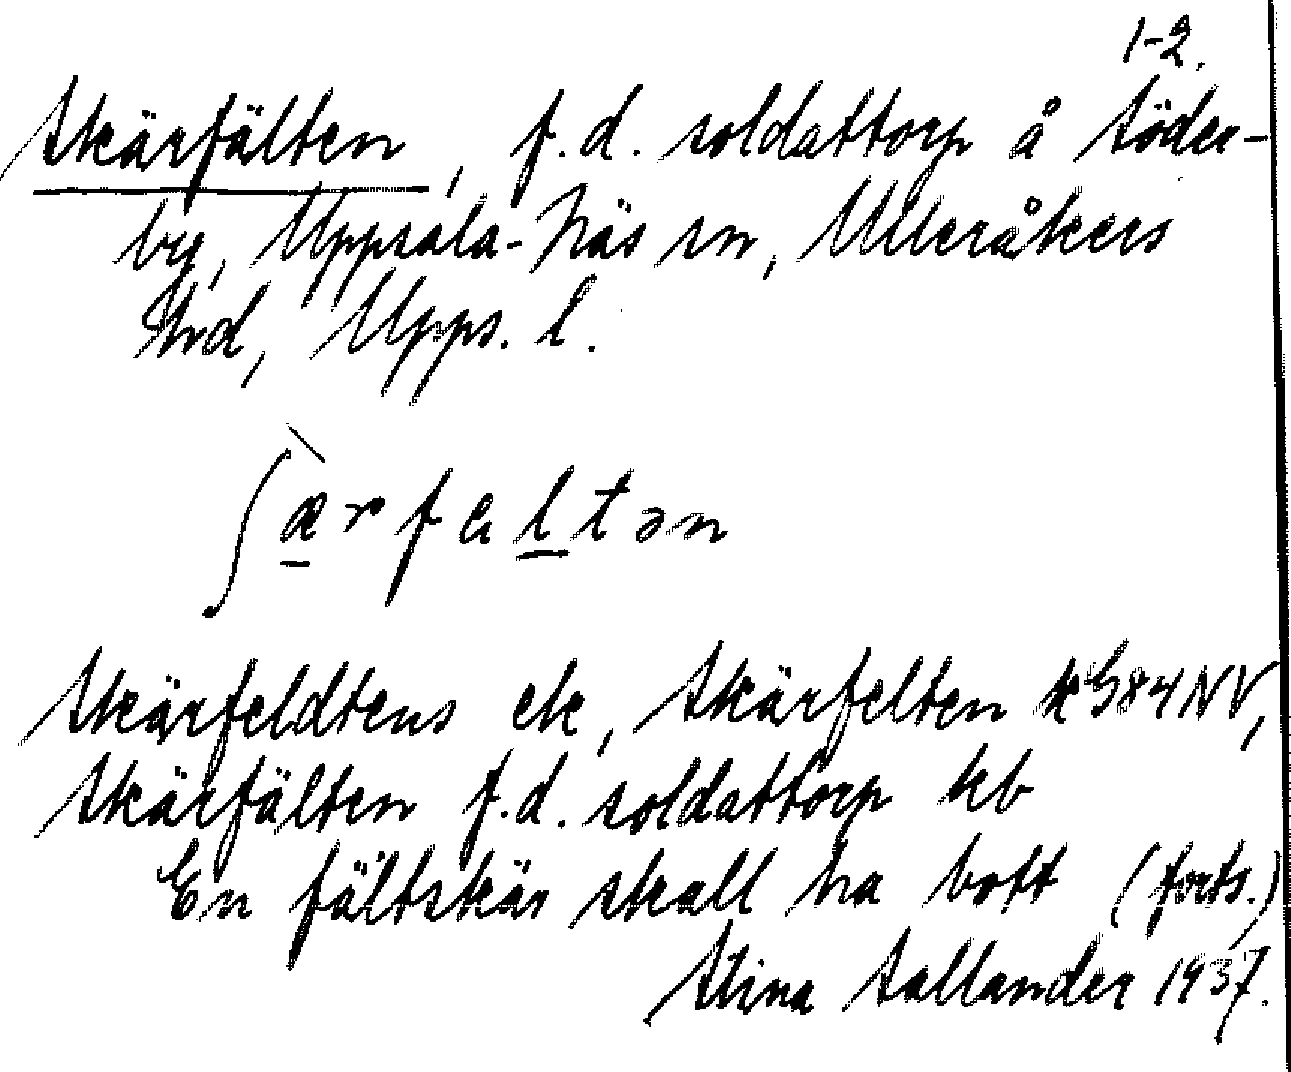 1-2.
Skärfälten, f.d. soldattorp å Söder-
by, Uppsala-Näs sn, Ulleråkers
hrd, Upps. l.
ʃæ̀rfɛltən
Skärfeldtens ek, Skärfelten k G84NV,
Skärfälten f.d. soldattorp kb
En fältskär skall ha bott (forts.)
Stina Sallander 1937.